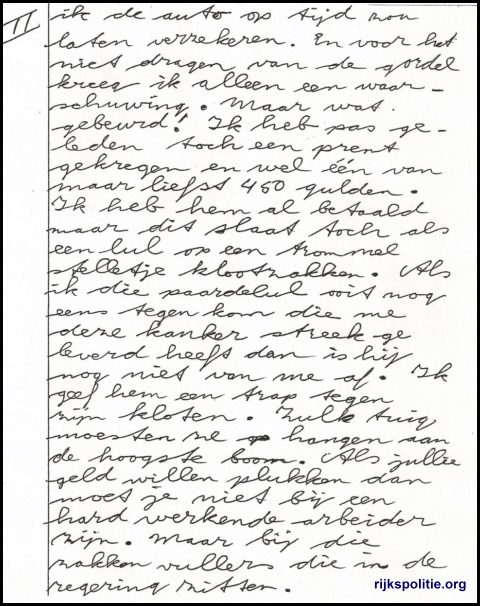 II
ik de auto op tijd zou
laten verzekeren. En voor het
niet dragen van de gordel
kreeg ik alleen een waar-
schuwing. Maar wat
gebeurd! Ik heb pas ge-
leden toch een prent
gekregen en wel één van
maar liefst 450 gulden.
Ik heb hem al betaald
maar dit slaat toch als
een lul op een trommel
stelletje klootzakken. Als
ik die paardelul ooit nog
eens tegen kom die me
deze kanker streek ge
leverd heeft dan is hij
nog niet van me af. Ik
geef hem een trap tegen
zijn kloten. Zulk tuig
moesten ze hangen aan
de hoogste boom. Als jullie
geld willen plukken dan
moet je niet bij een
hard werkende arbeider
zijn. Maar bij die
zakken vullers die in de
regering zitten.
rijkspolitie.org